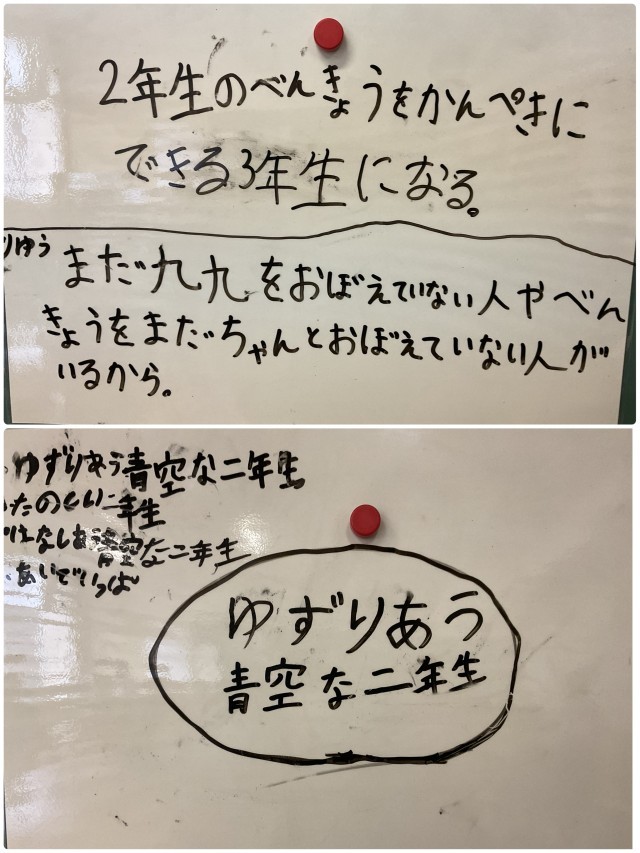 2年生のべんきょうをかんぺきに
できる3年生になる。
りゆう
まだ九九をおぼえていない人やべん
きょうをまだちゃんとおぼえていない人が
いるから。
ゆずりあう青空な二年生
たのしい二年生
なしあう青空な二年生
あいでいっぱ
ゆずりあう
青空な二年生